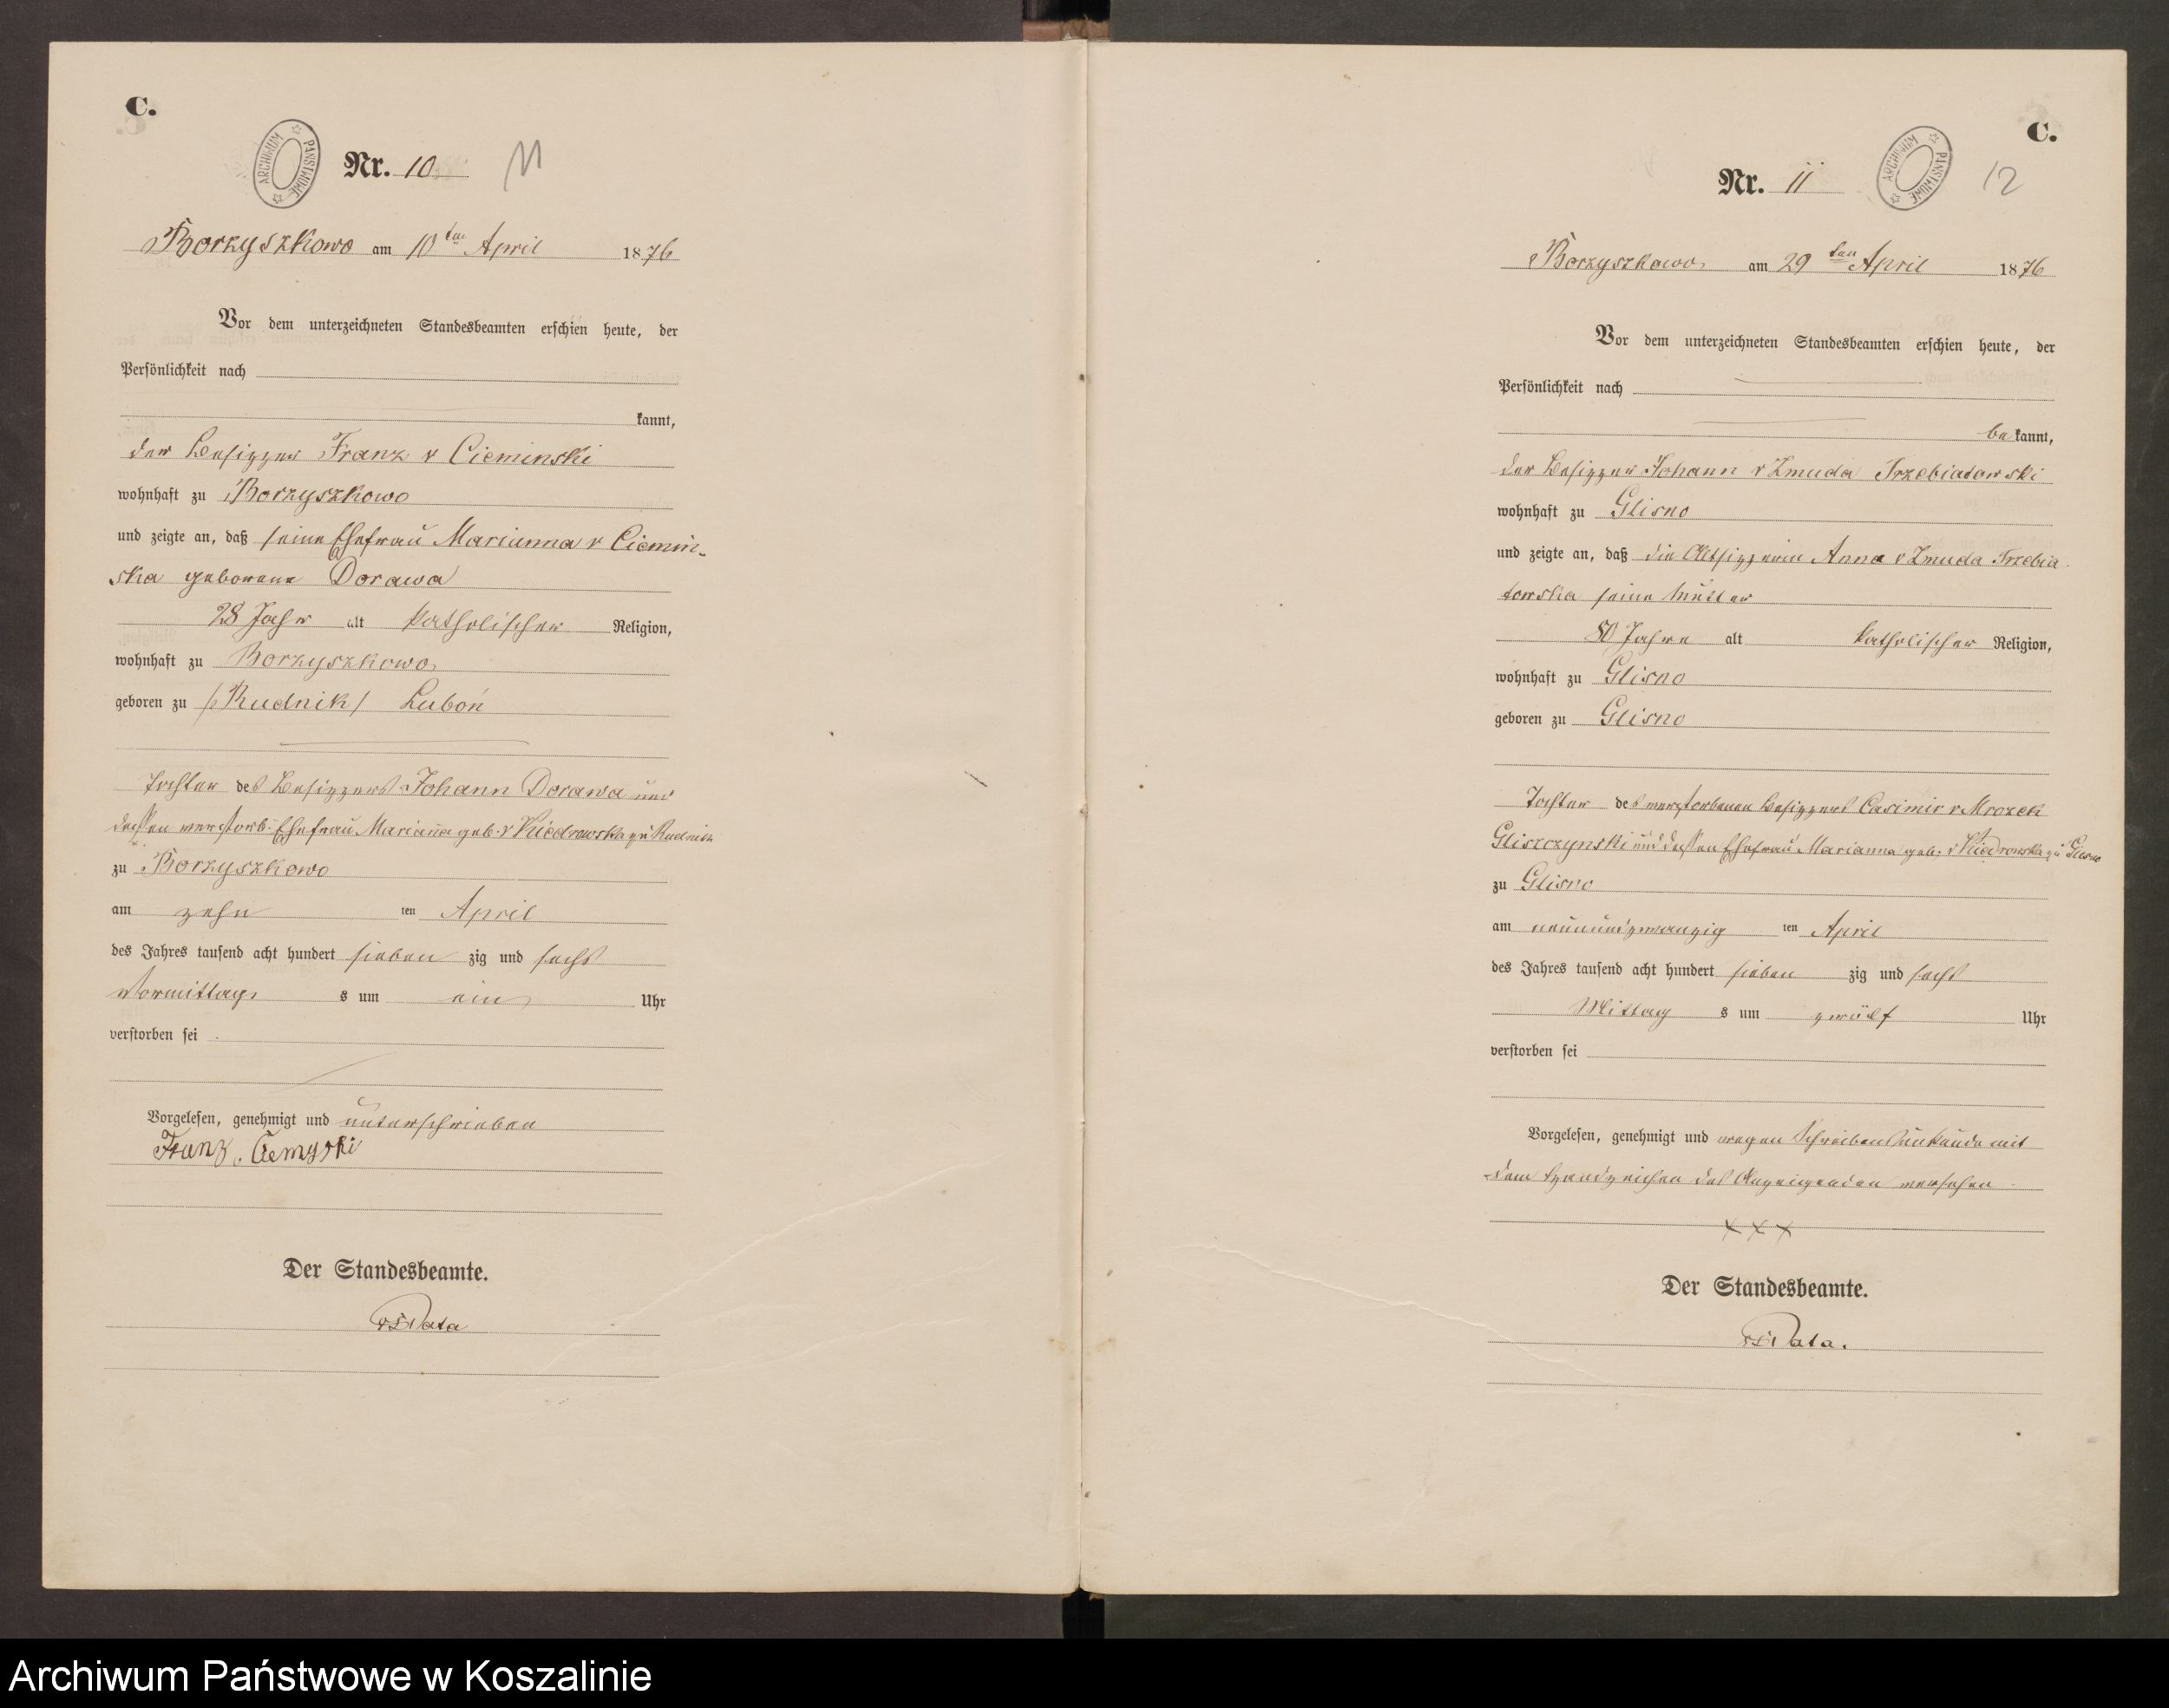 C.
ARCHIWUM PAŃSTWOWE
Nr. 10
11
Borzyszkowo am 10ten April 1876
Vor dem unterzeichneten Standesbeamten erschien heute, der
Persönlichkeit nach
kannt,
der Besitzer Franz v Cieminski
wohnhaft zu Borzyszkowo
und zeigte an, daß seine Ehefrau Marianna v Ciemin-
ska geborene Dorawa
28 Jahr alt katholischer Religion,
wohnhaft zu Borzyszkowo
geboren zu /Rudnik/ Luboń
Tochter des Besitzers Johann Dorawa und
dessen verstorb. Ehefrau Mariana geb. v Kiedrowska zu Rudnik
zu Borzyszkowo
am zehn ten April
des Jahres tausend acht hundert sieben zig und sechs
Vormittag s um ein Uhr
verstorben sei
Vorgelesen, genehmigt und unterschrieben
Franz
Der Standesbeamte.
C.
Nr. 11
ARCHIWUM PAŃSTWOWE
12
Borzyszkowo am 29ten April 1876
Vor dem unterzeichneten Standesbeamten erschien heute, der
Persönlichkeit nach
bekannt,
der Besitzer Johann v Zmuda Trzebiatowski
wohnhaft zu Glisno
und zeigte an, daß die Altsitzerin Anna v Zmuda Trzebia
towska seine Mutter
80 Jahre alt katholischer Religion,
wohnhaft zu Glisno
geboren zu Glisno
Tochter des verstorbenen Besitzers Casimir v Mrozek
Gliszczynski und dessen Ehefrau Marianna geb. v Kiedrowska zu Glisno
zu Glisno
am neunundzwanzig ten April
des Jahres tausend acht hundert sieben zig und sechs
Mittag s um zwölf Uhr
verstorben sei
Vorgelesen, genehmigt und wegen Schreibensunkunde mit
dem Handzeichen des Anzeigenden versehen
x x x
Der Standesbeamte.
Archiwum Państwowe w Koszalinie